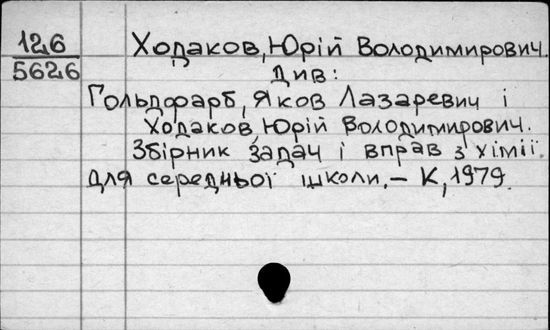 126 Ходаков, Юрій Володимирович.
5626 Див:
Гольдфарб, Яков Лазаревич і
Ходаков, Юрій Володимирович.
Збірник задач і вправ з хімії
для середньої школи. – К, 1979.